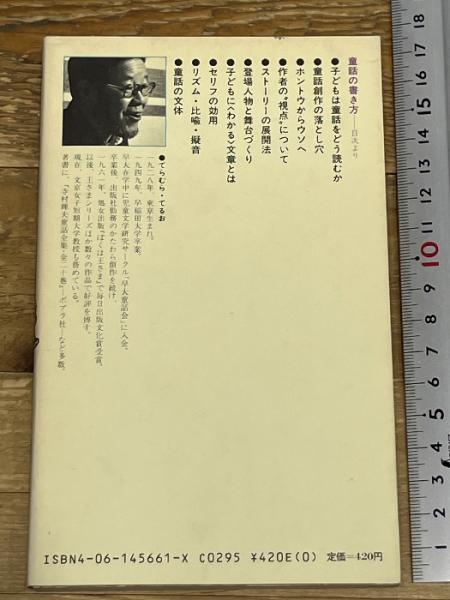 童話の書き方——目次より
●子どもは童話をどう読むか
●童話創作の落とし穴
●ホントウからウソへ
●作者の“視点”について
●ストーリーの展開法
●登場人物と舞台づくり
●子どもに〈わかる〉文章とは
●セリフの効用
●リズム・比喩・擬音
●童話の文体
●てらむら・てるお
一九二八年、東京生まれ。
一九四九年、早稲田大学卒業。
早大在学中に児童文学研究サークル「早大童話会」に入会。
卒業後、出版社勤務のかたわら創作を続け、
一九六一年、処女出版『ぼくは王さま』で毎日出版文化賞受賞。
以後、王さまシリーズほか数々の作品で好評を博す。
現在、文京女子短期大学教授も務めている。
著書に、『寺村輝夫童話全集・全二十巻』—ポプラ社—など多数。
ISBN4-06-145661-X C0295 ¥420E(0) 定価=420円
18
17
16
15
14
13
12
11
10
9
8
7
6
5
4
3
2
1